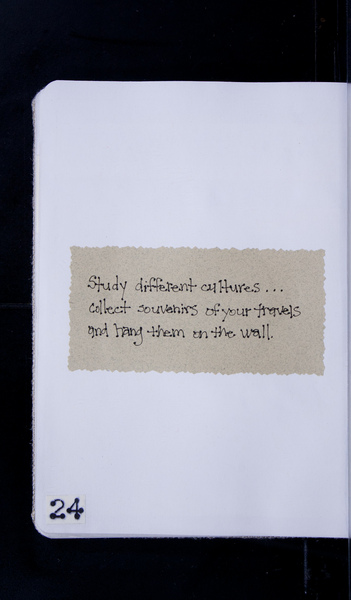 Study different cultures...
collect souvenirs of your travels
and hang them on the wall.
24